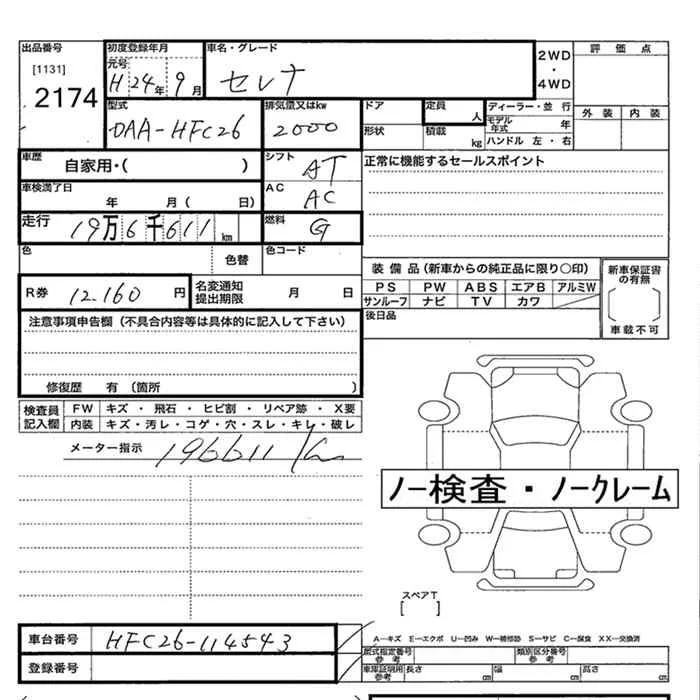 出品番号 初度登録年月 車名・グレード 2WD・4WD 評価点
[1131] 元号
2174 H 24年 9月 セレナ
外装 内装
型式 排気量又はkw ドア 定員 人 ディーラー・並行
DAA-HFC26 2000 形状 積載 kg モデル年式 年
ハンドル 左・右
車歴 自家用・( ) シフト AT 正常に機能するセールスポイント
車検満了日 年 月( 日) AC AC
走行 19万6千611km 燃料 G
色 色替 色コード
装備品(新車からの純正品に限り○印) 新車保証書の有無
R券 12,160円 名変通知提出期限 月 日 PS PW ABS エアB アルミW
サンルーフ ナビ TV カワ
車載不可
注意事項申告欄(不具合内容等は具体的に記入して下さい) 後日品
修復歴 有(箇所 )
検査員記入欄 FW キズ・飛石・ヒビ割・リペア跡・X要
内装 キズ・汚レ・コゲ・穴・スレ・キレ・破レ
メーター指示 196611 km
ノー検査・ノークレーム
スペアT
[ ]
車台番号 HFC26-114543 A―キズ E―エクボ U―凹み W―補修跡 S―サビ C―腐食 XX―交換済
型式指定番号 参考 類別区分番号 参考
登録番号 車庫証明用 参考 長さ cm 幅 cm 高さ cm